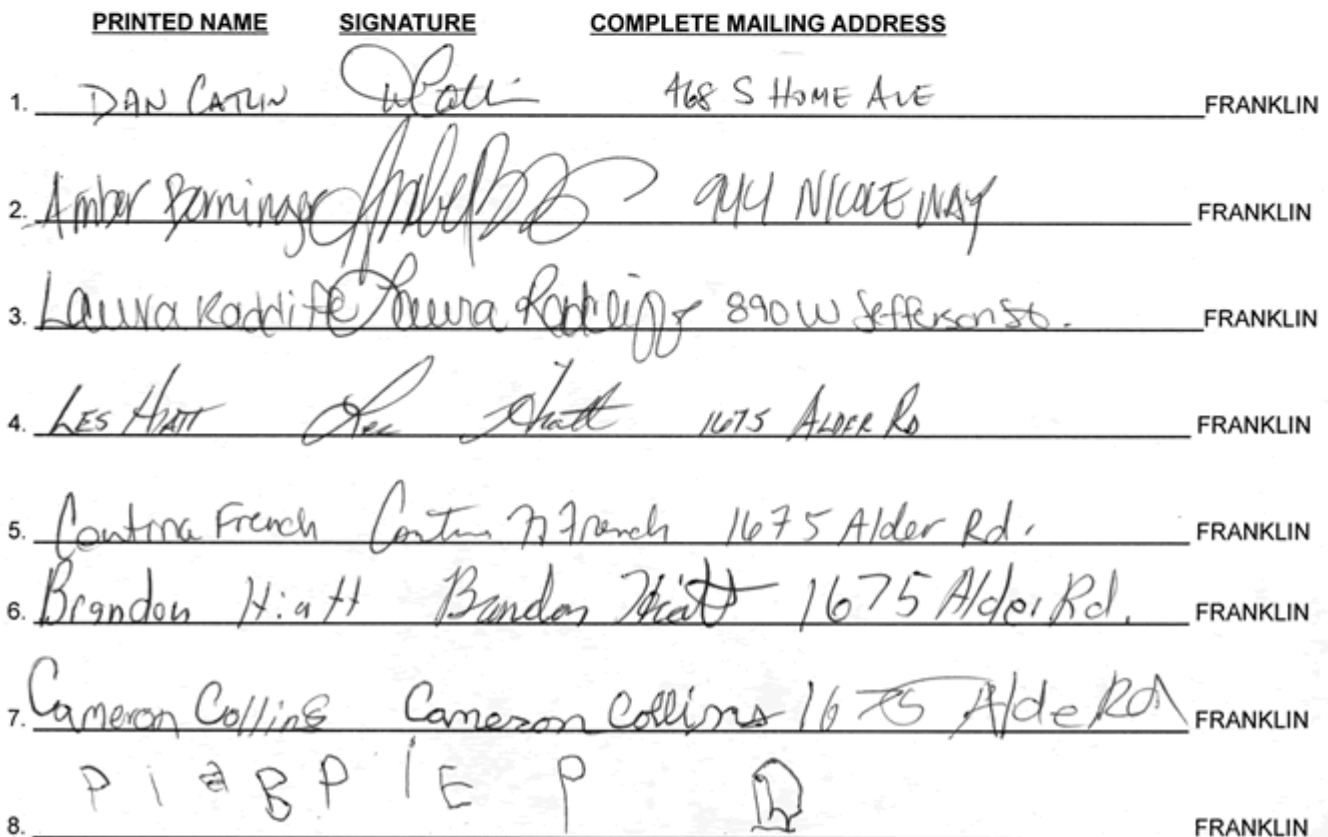 PRINTED NAME SIGNATURE COMPLETE MAILING ADDRESS
1. DAN CATLIN D Catli 468 S HOME AVE FRANKLIN
2. Amber Berninger 944 NICOLE WAY FRANKLIN
3. Laura Radcliffe Laura Radcliffe 890 W Jefferson St. FRANKLIN
4. LES HIATT Les Hiatt 1675 ALDER RD FRANKLIN
5. Contina French 1675 Alder Rd. FRANKLIN
6. Brandon Hiatt Brandon Hiatt 1675 Alder Rd. FRANKLIN
7. Cameron Collins Cameron Collins 1675 Alde Rd FRANKLIN
8. FRANKLIN